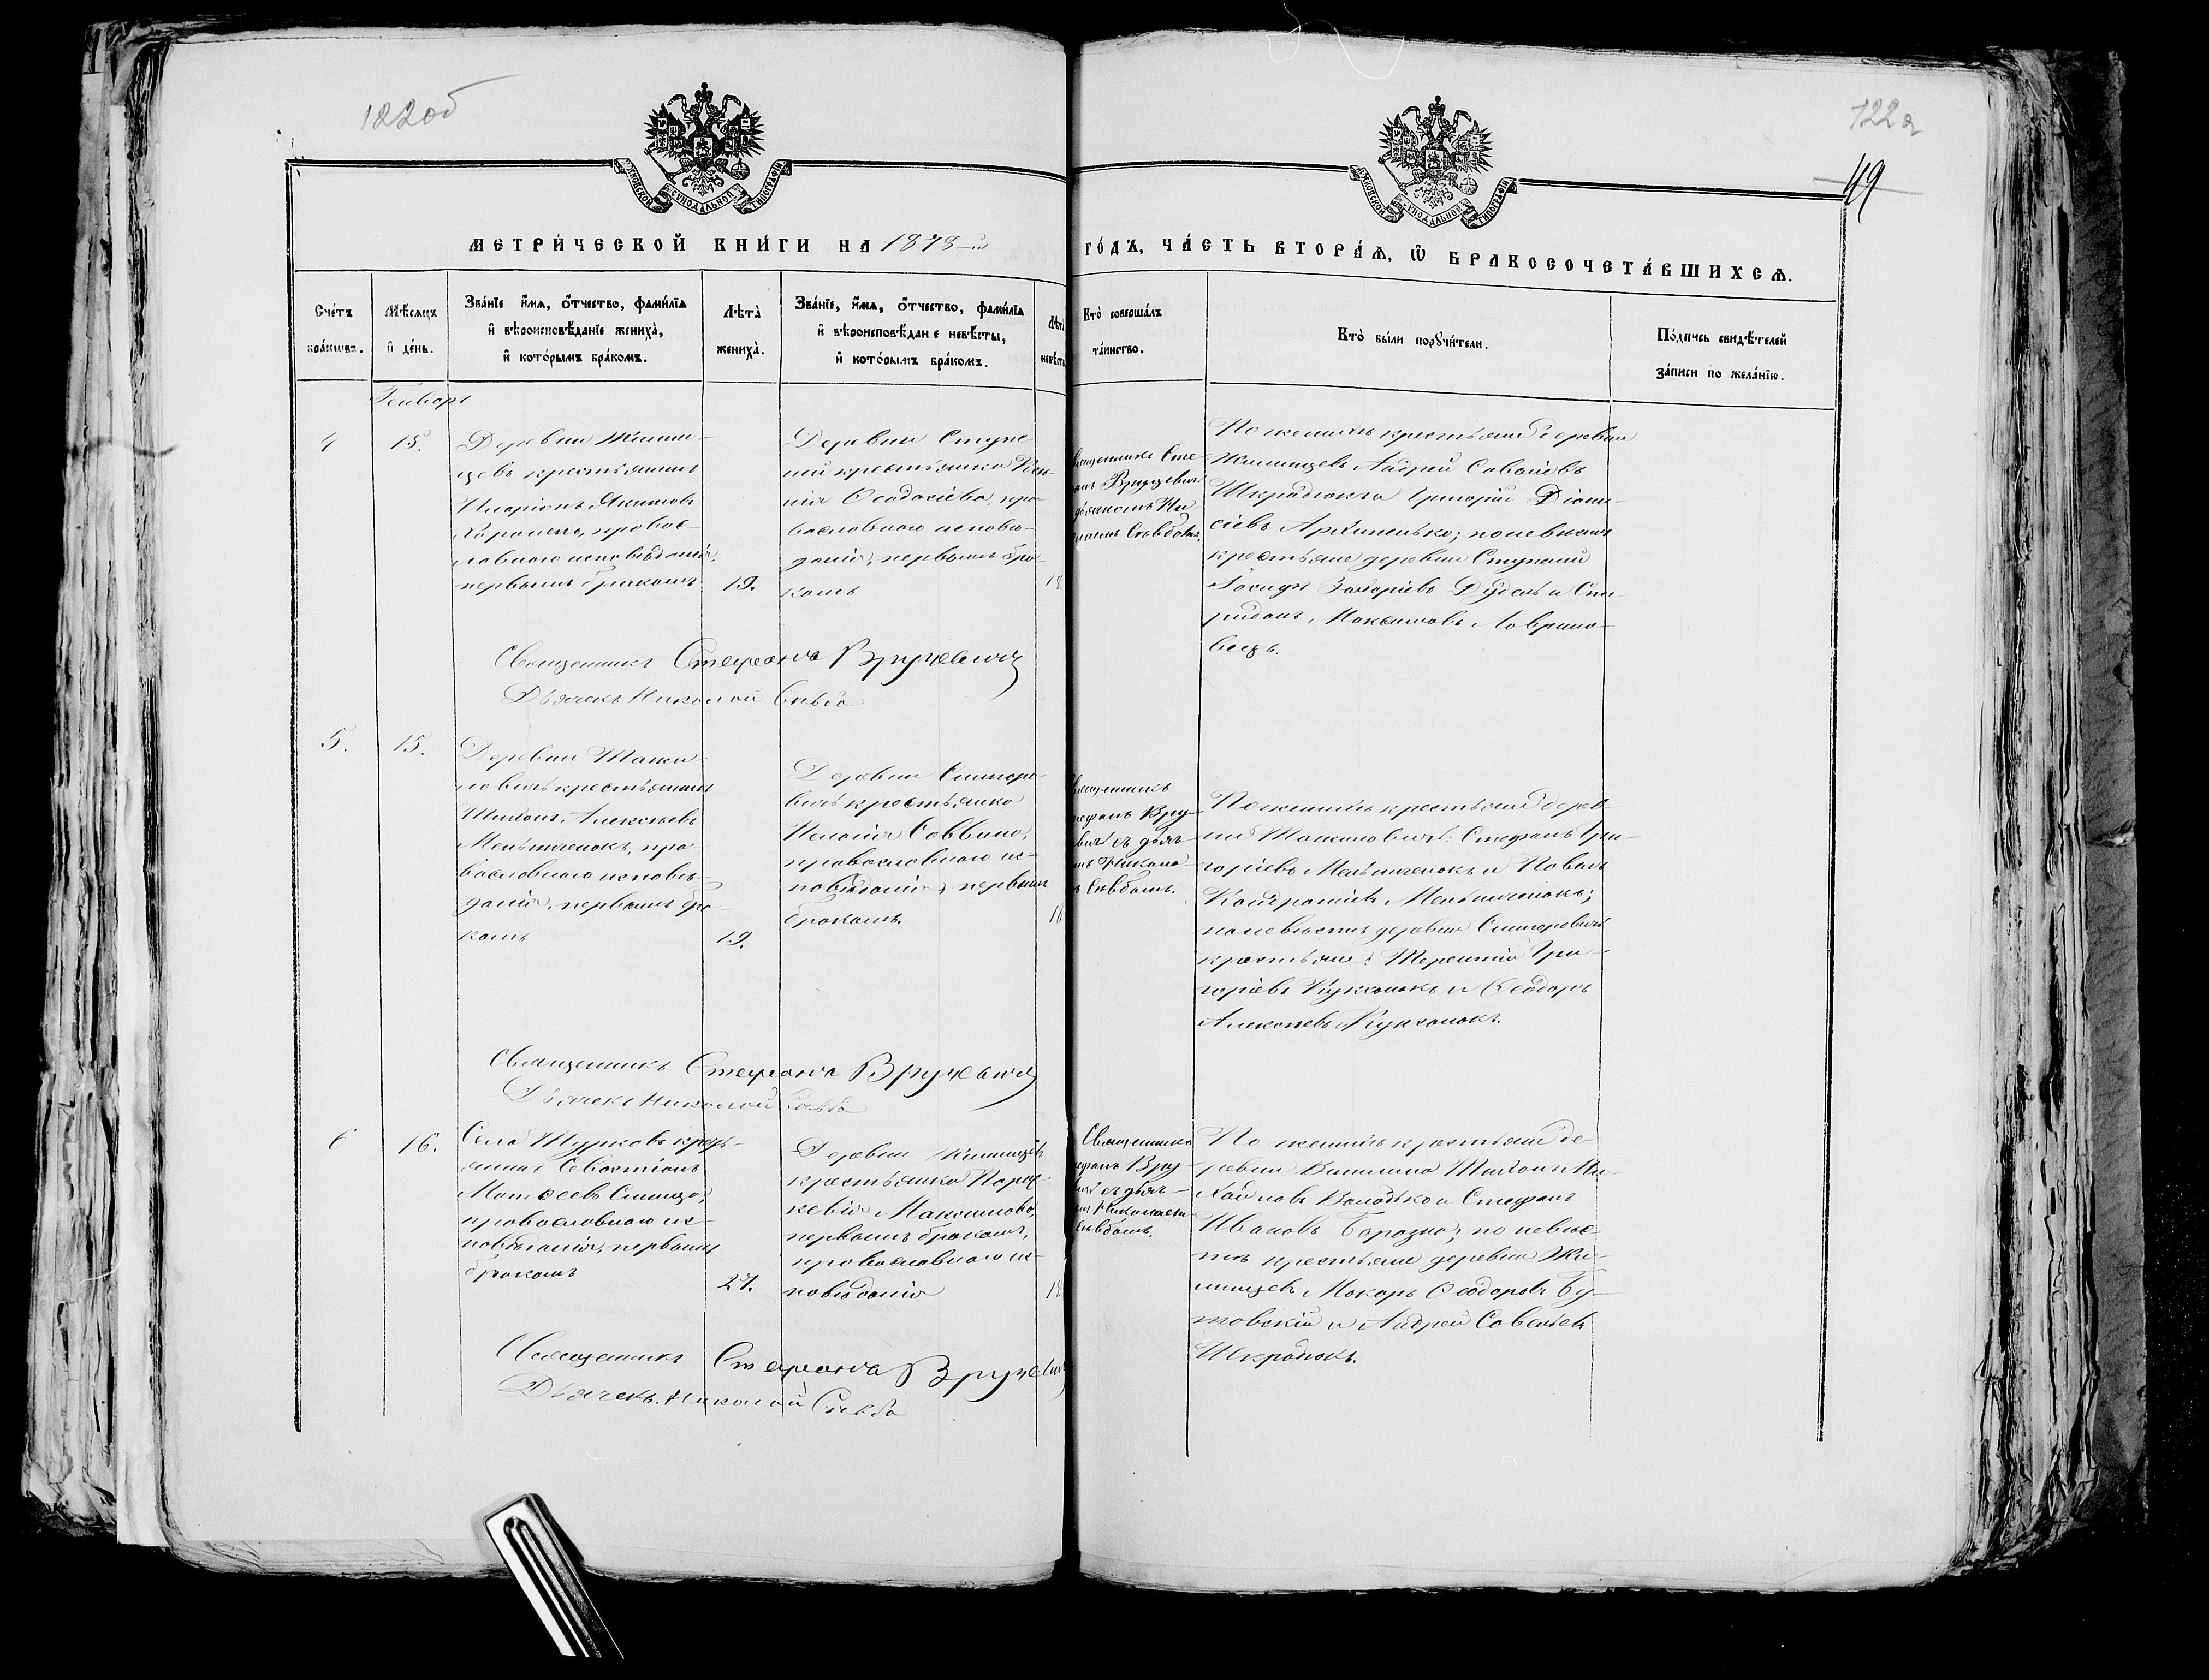 122 об
122 а
49
МЕТРИЧЕСКОЙ КНИГИ НА 1878-й
ГОДЪ, ЧАСТЬ ВТОРАЯ, Ѡ БРАКОСОЧЕТАВШИХСЯ.
Счетъ браковъ.
Мѣсяцъ и день.
Званіе, имя, отчество, фамилія и вѣроисповѣданіе жениха, и которымъ бракомъ.
Лѣта жениха.
Званіе, имя, отчество, фамилія и вѣроисповѣданіе невѣсты, и которымъ бракомъ.
Лѣта невѣсты
Кто совершалъ таинство.
Кто были поручители.
Подпись свидѣтелей записи по желанію.
Генварь
4
15.
Деревни Жилин-
цевъ крестьянинъ
Иларіонъ Акимовъ
православ-
лавнаго исповѣданія,
первымъ бракомъ
19.
Деревни Ступе-
ней крестьянка
Ѳеодосіева, пра-
вославнаго исповѣ-
данія, первымъ бра-
комъ
18.
Священникъ Сте-
фанъ Вруцевичъ
съ дьячкомъ Ни-
колаемъ Слѣбою.
По женихѣ крестьяне деревни
Жилинцевъ Андрей Савельевъ
Шкрадюкъ и Григорій Діони-
сіевъ Архипенько; по невѣстѣ
крестьяне деревни Ступеней
Іосифъ Захаріевъ Дуденъ и Спи-
ридонъ Максимовъ Лаврино-
вецъ.
Священникъ Стефанъ Вруцевичъ
Дьячекъ Николай Слѣба
5.
15.
Деревни Тажи-
ловичъ крестьянинъ
Тихонъ Алексѣевъ
Мельниченокъ, пра-
вославнаго исповѣ-
данія, первымъ бра-
комъ
19.
Деревни Ситоро-
вичъ крестьянка
Пелагія Саввина,
православнаго ис-
повѣданія, первымъ
бракомъ.
18
Священникъ
Стефанъ Вру-
цевичъ съ дьяч-
комъ Никола-
емъ Слѣбою.
По женихѣ крестьяне дерев-
ни Тажиловичъ: Стефанъ Гри-
горіевъ Мельниченокъ и Павелъ
Кондратіевъ Мельниченокъ;
по невѣстѣ деревни Ситоровичъ
крестьяне: Терентій Гри-
горіевъ Кухтенокъ и Ѳеодоръ
Алексѣевъ
Священникъ Стефанъ Вруцевичъ
Дьячекъ Николай Слѣба
6
16.
Села Турковъ кресть-
янинъ Севастіанъ
Матѳеевъ Синица,
православнаго ис-
повѣданія, первымъ
бракомъ
27.
Деревни Жилинцевъ
крестьянка Парас-
кевія Максимова,
первымъ бракомъ,
православнаго ис-
повѣданія
18
Священникъ
Стефанъ Вру-
цевичъ съ дьяч-
комъ Николаемъ
Слѣбою.
По женихѣ крестьяне де-
ревни Тихонъ Ми-
хайловъ Володько и Стефанъ
Ивановъ Барозна; по невѣс-
тѣ крестьяне деревни Жи-
линцевъ Макаръ Ѳеодоровъ Бу-
товскій и Андрей Савельевъ
Шкрадюкъ.
Священникъ Стефанъ Вруцевичъ
Дьячекъ Николай Слѣба